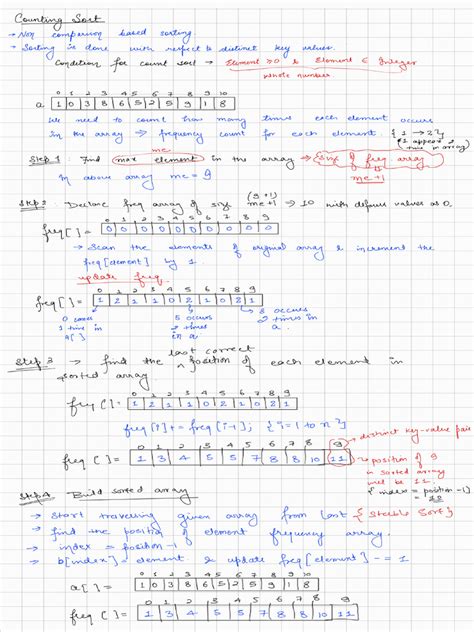 Counting Sort
→ Non comparison based sorting.
→ Sorting is done with respect to distinct key values.
Condition for count sort → Element ≥0 & Element ∈ Integer
whole number
0 1 2 3 4 5 6 7 8 9 10
a 1 0 3 8 6 5 2 5 9 1 8
We need to count how many times each element occurs
in the array → frequency count for each element. { 1 → 2 }
{ 1 appears 2 time in array }
me
Step 1 : Find max element in the array → size of freq array
me+1
In above array me = 9
(9+1)
Step 2 : Declare freq array of size me+1 → 10 with default values as 0,
0 1 2 3 4 5 6 7 8 9
freq[ ]= 0 0 0 0 0 0 0 0 0 0
→ Scan the elements of original array & increment the
freq[element] by 1.
update freq.
0 1 2 3 4 5 6 7 8 9
freq[ ]= 1 2 1 1 0 2 1 0 2 1
0 occurs 1 time in a[ ]
5 occurs 2 times in a
8 occurs 2 times in a.
last correct
Step 3 → find the position of each element in
sorted array
0 1 2 3 4 5 6 7 8 9
freq [ ]= 1 2 1 1 0 2 1 0 2 1
freq[i] += freq[i-1]; { i = 1 to n }
→ distinct key-value pair
0 1 2 3 4 5 6 7 8 9
freq [ ]= 1 3 4 5 5 7 8 8 10 11
→ position of 9
in sorted array
will be 11.
{ index = position -1 }
= 10
Step 4 Build sorted array
→ Start traversing given array from last { Stable Sort }
→ find the position of element frequency array.
→ index = position -1
→ b[index] = element & update freq[element] -= 1
0 1 2 3 4 5 6 7 8 9 10
a[ ]= 1 0 3 8 6 5 2 5 9 1 8
0 1 2 3 4 5 6 7 8 9
freq [ ]= 1 3 4 5 5 7 8 8 10 11